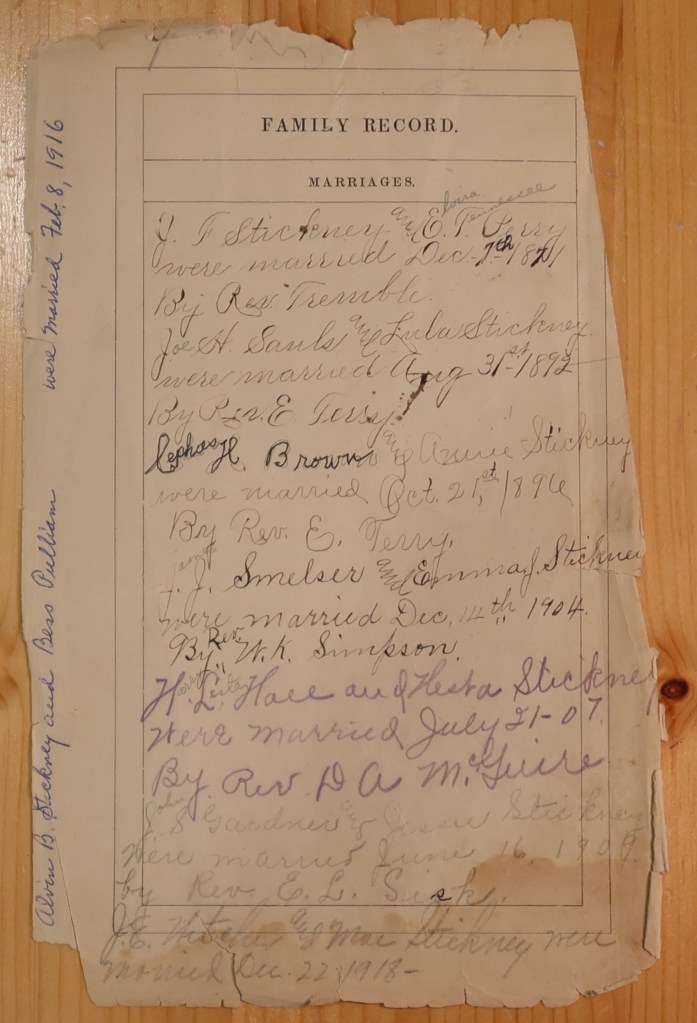 FAMILY RECORD.
MARRIAGES.
Elvira Tennessee
J. F Stickney and E. T. Perry
were married Dec. 7th 1871
By Rev. Tremble.
Joe H. Sauls and Lula Stickney
were married Aug 31st 1892
By Rev. E. Terry.
Cephas H. Brown and Annie Stickney
were married Oct. 21st, 1896
By Rev. E. Terry.
James
J. J. Smelser and Emma J. Stickney
were married Dec. 14th 1904.
By Rev. W. K. Simpson.
Harry Lester
H. L. Hall and Hesta Stickney
were married July 21-07
By Rev D A McGuire
John
J. S Gardner and Jessie Stickney
were married June 16, 1909.
by Rev. E. L. Sisk.
J. E. and Mae Stickney were
married Dec. 22 1918-
Alvin B. Stickney and Bess Pulliam were married Feb. 8, 1916